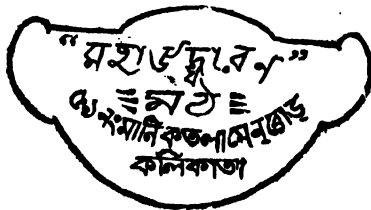 "মহাউদ্ধারণ"
মঠ
৫৯ নং মানিকতলা মেন্ রোড্
কলিকাতা